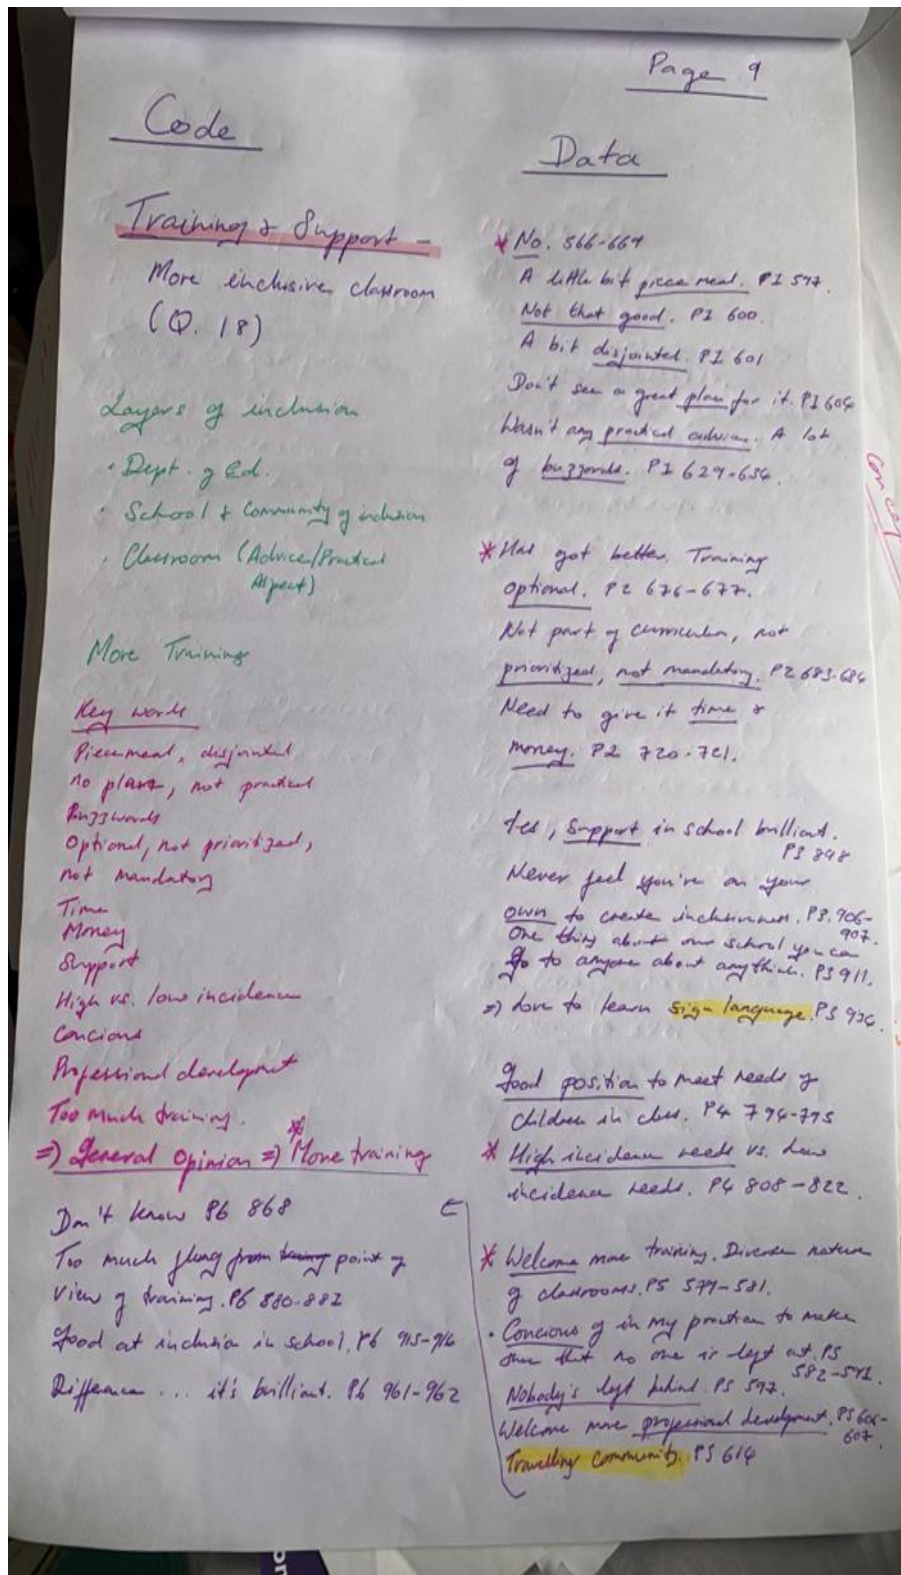 Page 9
Code
Data
Training & Support -
More inclusive classroom
(Q. 18)
Layers of inclusion
• Dept. of Ed.
• School & Community of inclusion
• Classroom (Advice/Practical
Aspect)
More Training
Key words
Piecemeal, disjointed
no plans, not practical
Buzzwords
Optional, not prioritized,
not mandatory
Time
Money
Support
High vs. low incidence
Concious
Professional development
Too much training.
=) General Opinion =) * More training
Don't know P6 868
Too much flung from point of
view of training. P6 880-882
Good at inclusion in school. P6 915-916
Difference ... it's brilliant. P6 961-962
* No. 566-664
A little bit piece meal. P1 597.
Not that good. P1 600.
A bit disjointed. P1 601
Don't see a great plan for it. P1 604
Wasn't any practical advice. A lot
of buzzwords. P1 629-634.
* Has got better. Training
optional. P2 676-677.
Not part of curriculum, not
prioritized, not mandatory. P2 683-684
Need to give it time &
money. P2 720-721.
Yes, Support in school brilliant.
P3 898
Never feel you're on your
own to create inclusiveness. P3. 906-
907.
One thing about our school you can
go to anyone about anything. P3 911.
=) Love to learn sign language. P3 934.
Good position to meet needs of
children in class. P4 794-795
* High incidence needs vs. Low
incidence needs. P4 808-822.
* Welcome more training. Diverse nature
of classrooms. P5 579-581.
• Concious of in my practice to make
sure that no one is left out. P5
582-591.
Nobody's left behind. P5 597.
Welcome more professional development. P5 606-
607.
Travelling Community. P5 614